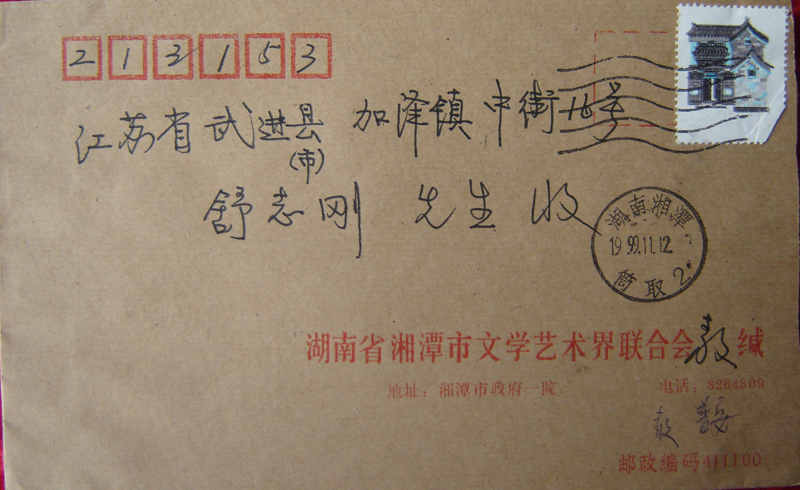 213153
江苏省武进县 加泽镇 中街16号
(市)
舒志刚 先生 收
湖南湘潭
1999.11.12
筒取 2
湖南省湘潭市文学艺术界联合会 敖 缄
地址：湘潭市政府一院 电话：8264809
敖普安
邮政编码411100